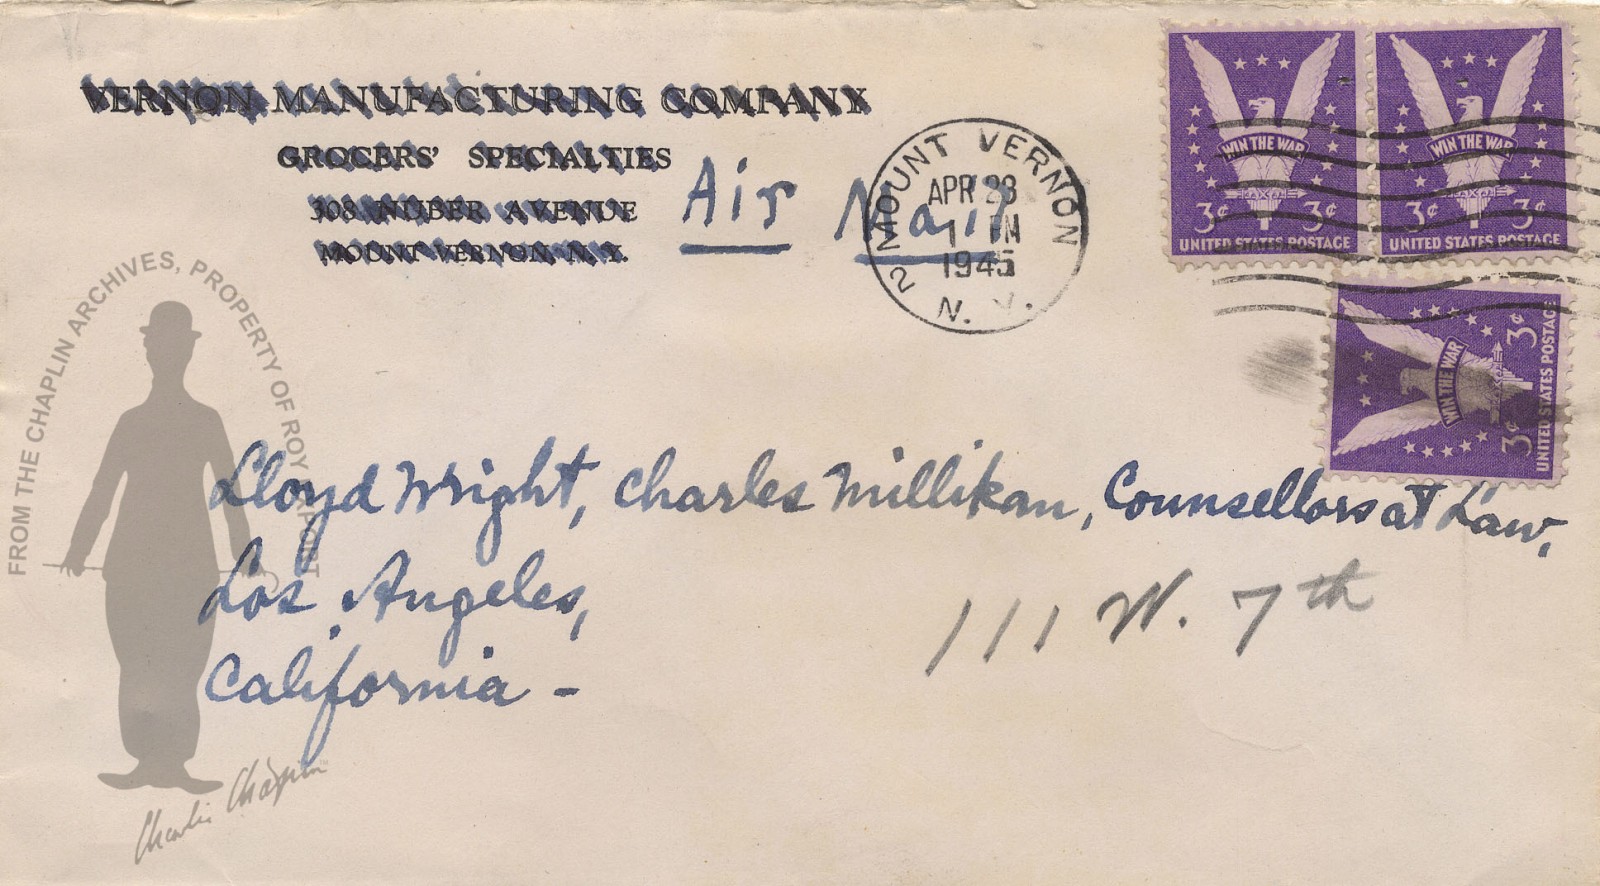 VERNON MANUFACTURING COMPANY
GROCERS' SPECIALTIES
308 NUBER AVENUE
MOUNT VERNON, N. Y.
Air Mail
2 MOUNT VERNON
APR 23
1 PM
1945
N. Y.
WIN THE WAR
3¢ 3¢
UNITED STATES POSTAGE
WIN THE WAR
3¢ 3¢
UNITED STATES POSTAGE
WIN THE WAR
3¢ 3¢
UNITED STATES POSTAGE
FROM THE CHAPLIN ARCHIVES, PROPERTY OF ROY EXPORT
Lloyd Wright, Charles Millikan, Counsellors at Law,
Los Angeles,
California -
111 W. 7th
Charlie Chaplin